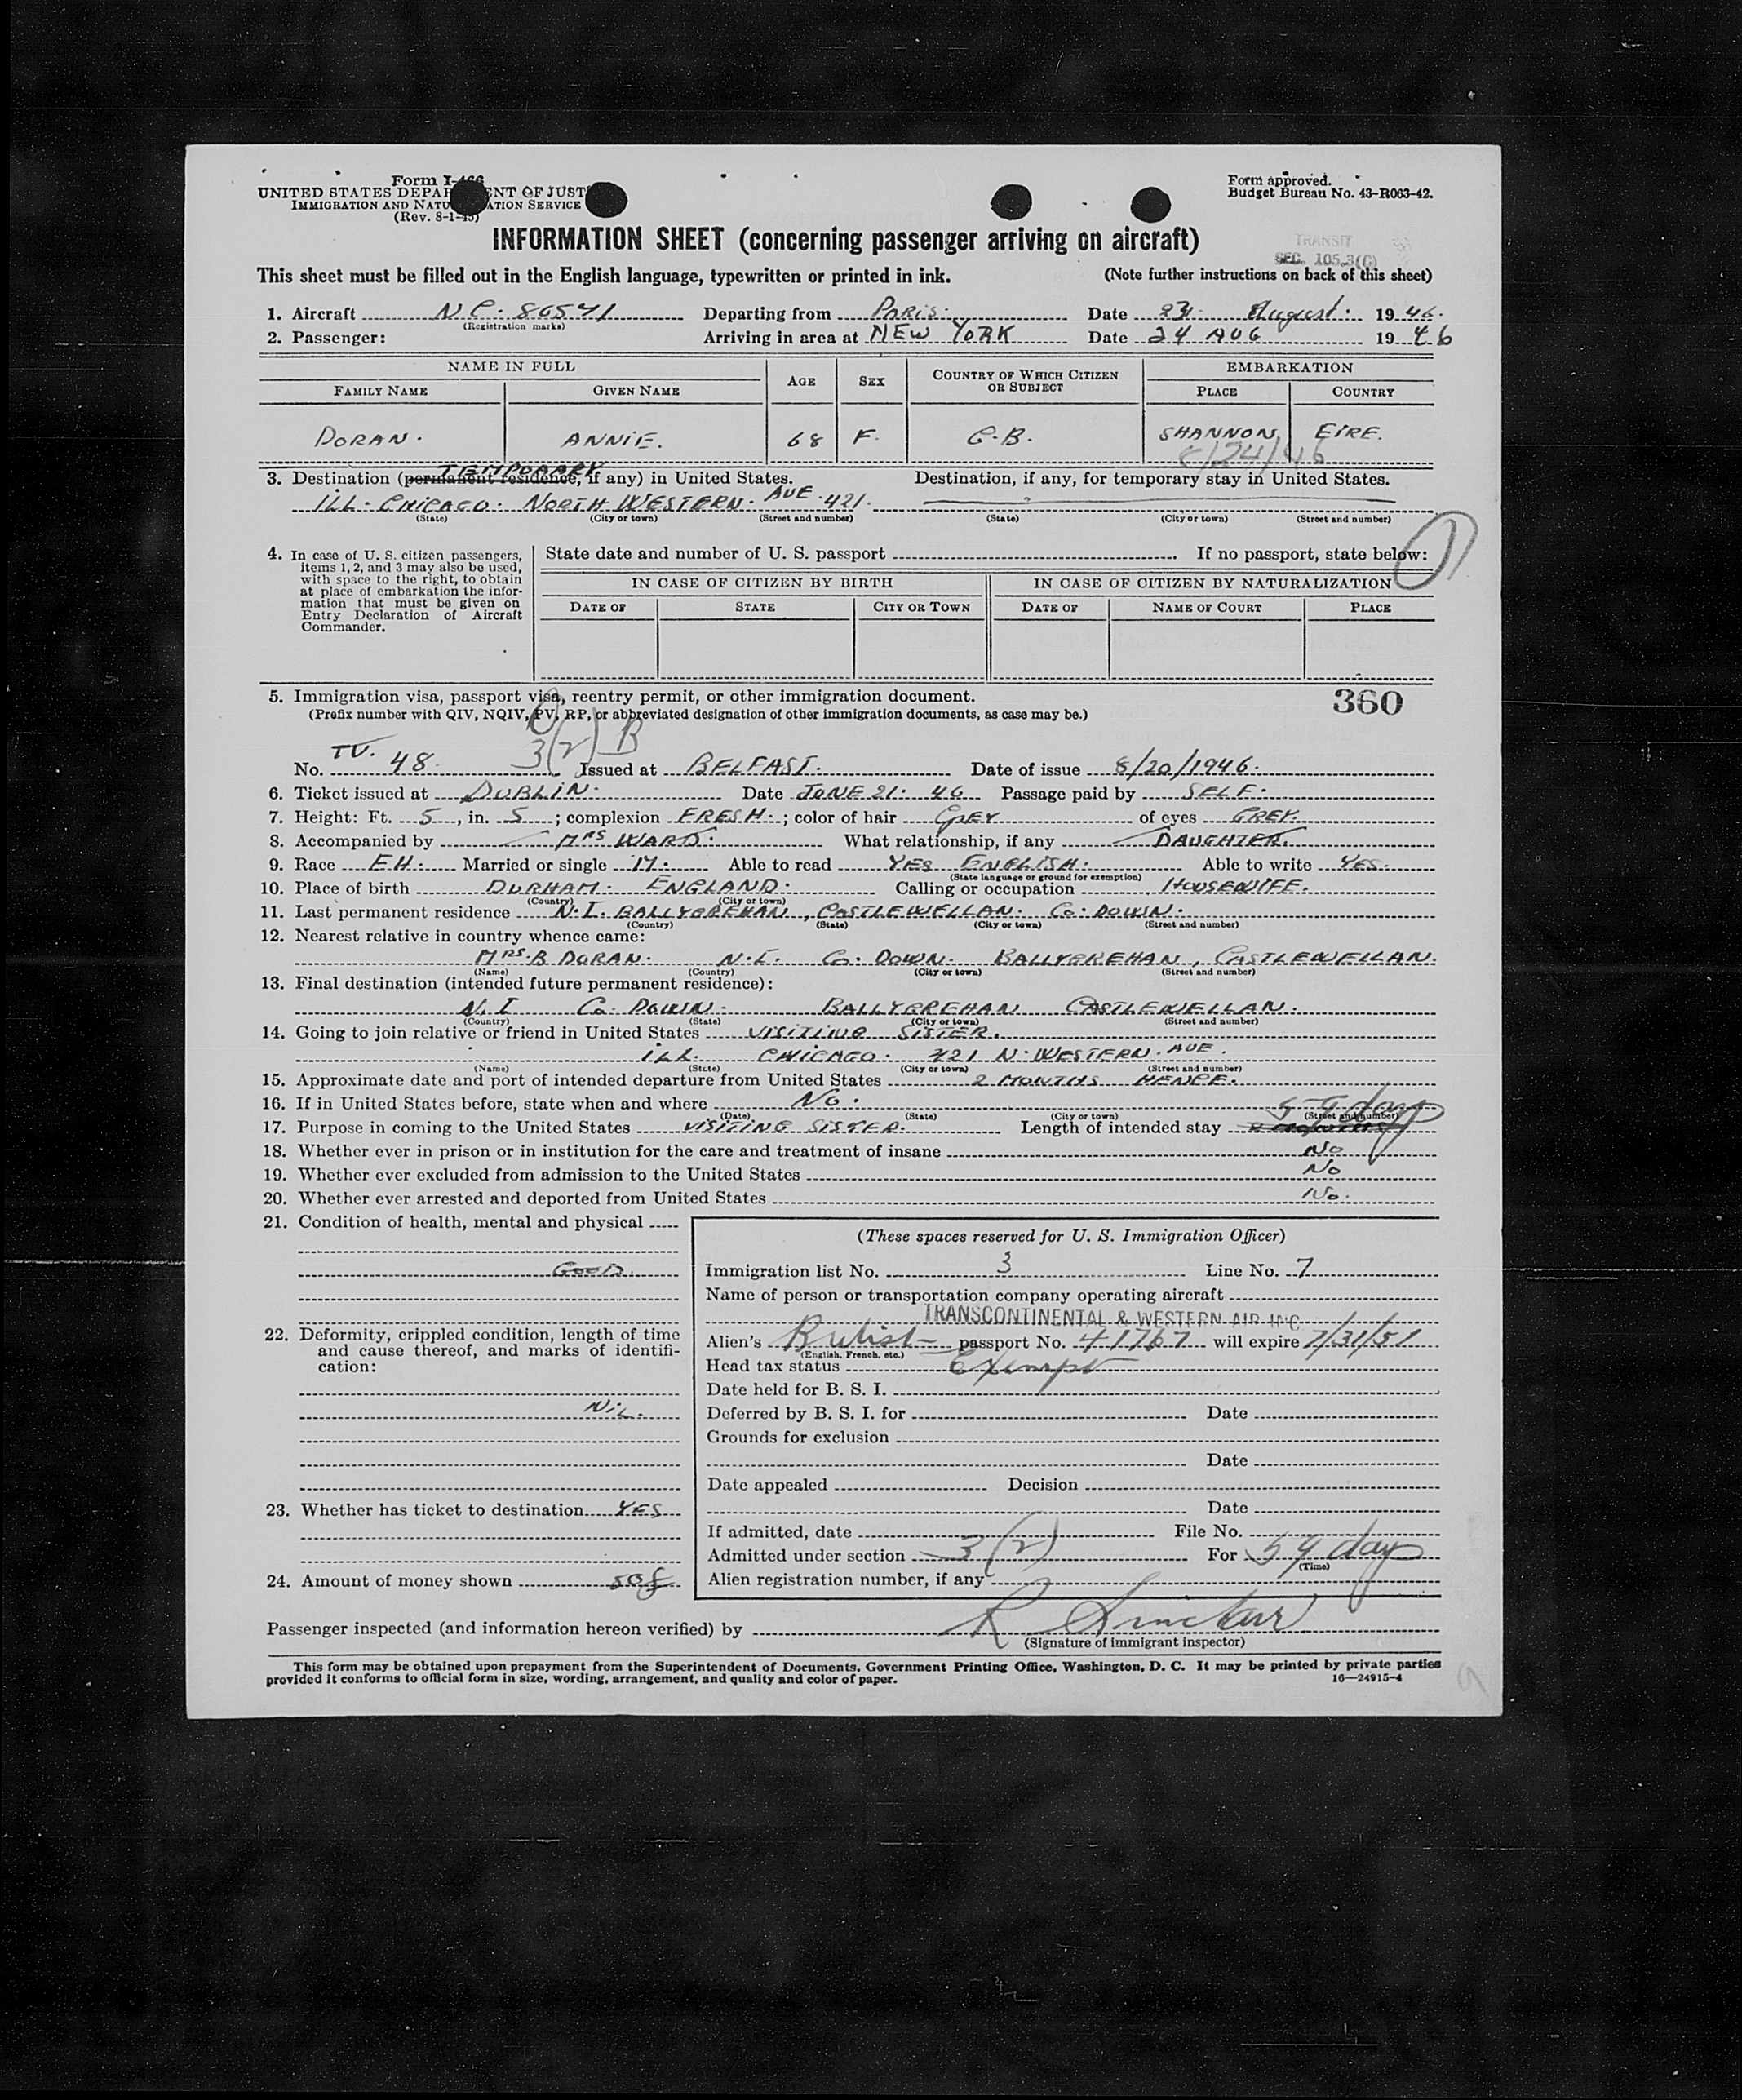 Form I-466
UNITED STATES DEPARTMENT OF JUSTICE
IMMIGRATION AND NATURALIZATION SERVICE
(Rev. 8-1-45)
Form approved.
Budget Bureau No. 43-R063-42.
INFORMATION SHEET (concerning passenger arriving on aircraft)
TRANSIT
SEC. 105.3(C)
This sheet must be filled out in the English language, typewritten or printed in ink. (Note further instructions on back of this sheet)
1. Aircraft NC. 86541 Departing from PARIS. Date 23 August. 1946.
(Registration marks)
2. Passenger: Arriving in area at NEW YORK Date 24 AUG 1946
NAME IN FULL AGE SEX COUNTRY OF WHICH CITIZEN OR SUBJECT EMBARKATION
FAMILY NAME GIVEN NAME PLACE COUNTRY
DORAN. ANNIE. 68 F. G.B. SHANNON, EIRE.
8/24/46
TEMPORARY
3. Destination (permanent residence, if any) in United States. Destination, if any, for temporary stay in United States.
ILL. CHICAGO. NORTH WESTERN. AVE. 421.
(State) (City or town) (Street and number) (State) (City or town) (Street and number)
4. In case of U. S. citizen passengers, items 1, 2, and 3 may also be used, with space to the right, to obtain at place of embarkation the information that must be given on Entry Declaration of Aircraft Commander.
State date and number of U. S. passport If no passport, state below:
IN CASE OF CITIZEN BY BIRTH IN CASE OF CITIZEN BY NATURALIZATION
DATE OF STATE CITY OR TOWN DATE OF NAME OF COURT PLACE
5. Immigration visa, passport visa, reentry permit, or other immigration document. 360
(Prefix number with QIV, NQIV, PV, RP, or abbreviated designation of other immigration documents, as case may be.)
3(2) B
No. TV. 48. Issued at BELFAST. Date of issue 8/20/1946.
6. Ticket issued at DUBLIN. Date JUNE 21. 46 Passage paid by SELF.
7. Height: Ft. 5, in. 5; complexion FRESH.; color of hair GREY of eyes GREY.
8. Accompanied by MRS WARD. What relationship, if any DAUGHTER.
9. Race EH. Married or single M. Able to read YES ENGLISH. Able to write YES.
(State language or ground for exemption)
10. Place of birth DURHAM. ENGLAND. Calling or occupation HOUSEWIFE.
(Country) (City or town)
11. Last permanent residence N.I. BALLYGREHAN, CASTLEWELLAN. Co. DOWN.
(Country) (State) (City or town) (Street and number)
12. Nearest relative in country whence came:
MRS. B DORAN. N.I. Co. DOWN. BALLYGREHAN, CASTLEWELLAN.
(Name) (Country) (City or town) (Street and number)
13. Final destination (intended future permanent residence):
N.I Co. DOWN. BALLYGREHAN CASTLEWELLAN.
(Country) (State) (City or town) (Street and number)
14. Going to join relative or friend in United States VISITING SISTER.
ILL. CHICAGO. 421 N. WESTERN. AVE.
(Name) (State) (City or town) (Street and number)
15. Approximate date and port of intended departure from United States 2 MONTHS HENCE.
16. If in United States before, state when and where NO.
(Date) (State) (City or town) (Street and number)
59 days
17. Purpose in coming to the United States VISITING SISTER. Length of intended stay
18. Whether ever in prison or in institution for the care and treatment of insane No
19. Whether ever excluded from admission to the United States No
20. Whether ever arrested and deported from United States No.
21. Condition of health, mental and physical
GOOD.
22. Deformity, crippled condition, length of time and cause thereof, and marks of identification:
NIL.
23. Whether has ticket to destination YES
24. Amount of money shown 50£
(These spaces reserved for U. S. Immigration Officer)
Immigration list No. 3 Line No. 7
Name of person or transportation company operating aircraft
TRANSCONTINENTAL & WESTERN AIR INC
Alien's British passport No. 41767 will expire 7/31/51
(English, French, etc.)
Head tax status Exempt
Date held for B. S. I.
Deferred by B. S. I. for Date
Grounds for exclusion
Date
Date appealed Decision
Date
If admitted, date File No.
Admitted under section 3(2) For 59 days
(Time)
Alien registration number, if any
Passenger inspected (and information hereon verified) by R Sinclair
(Signature of immigrant inspector)
This form may be obtained upon prepayment from the Superintendent of Documents, Government Printing Office, Washington, D. C. It may be printed by private parties
provided it conforms to official form in size, wording, arrangement, and quality and color of paper. 16—24915-4